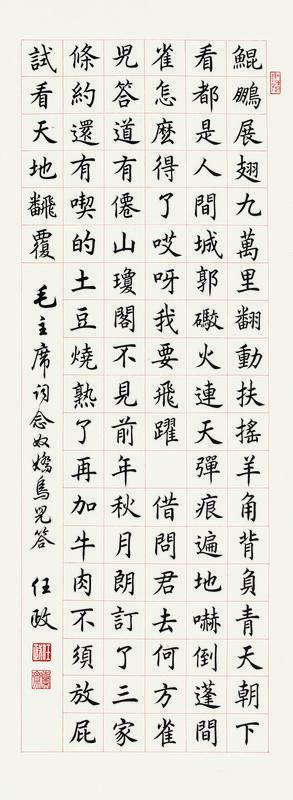 鯤鵬展翅九萬里翻動扶搖羊角背負青天朝下
看都是人間城郭礮火連天彈痕遍地嚇倒蓬間
雀怎麽得了哎呀我要飛躍 借問君去何方雀
兒答道有僊山瓊閣不見前年秋月朗訂了三家
條約還有喫的土豆燒熟了再加牛肉不須放屁
試看天地飜覆
毛主席词念奴嬌鳥兒答 任政